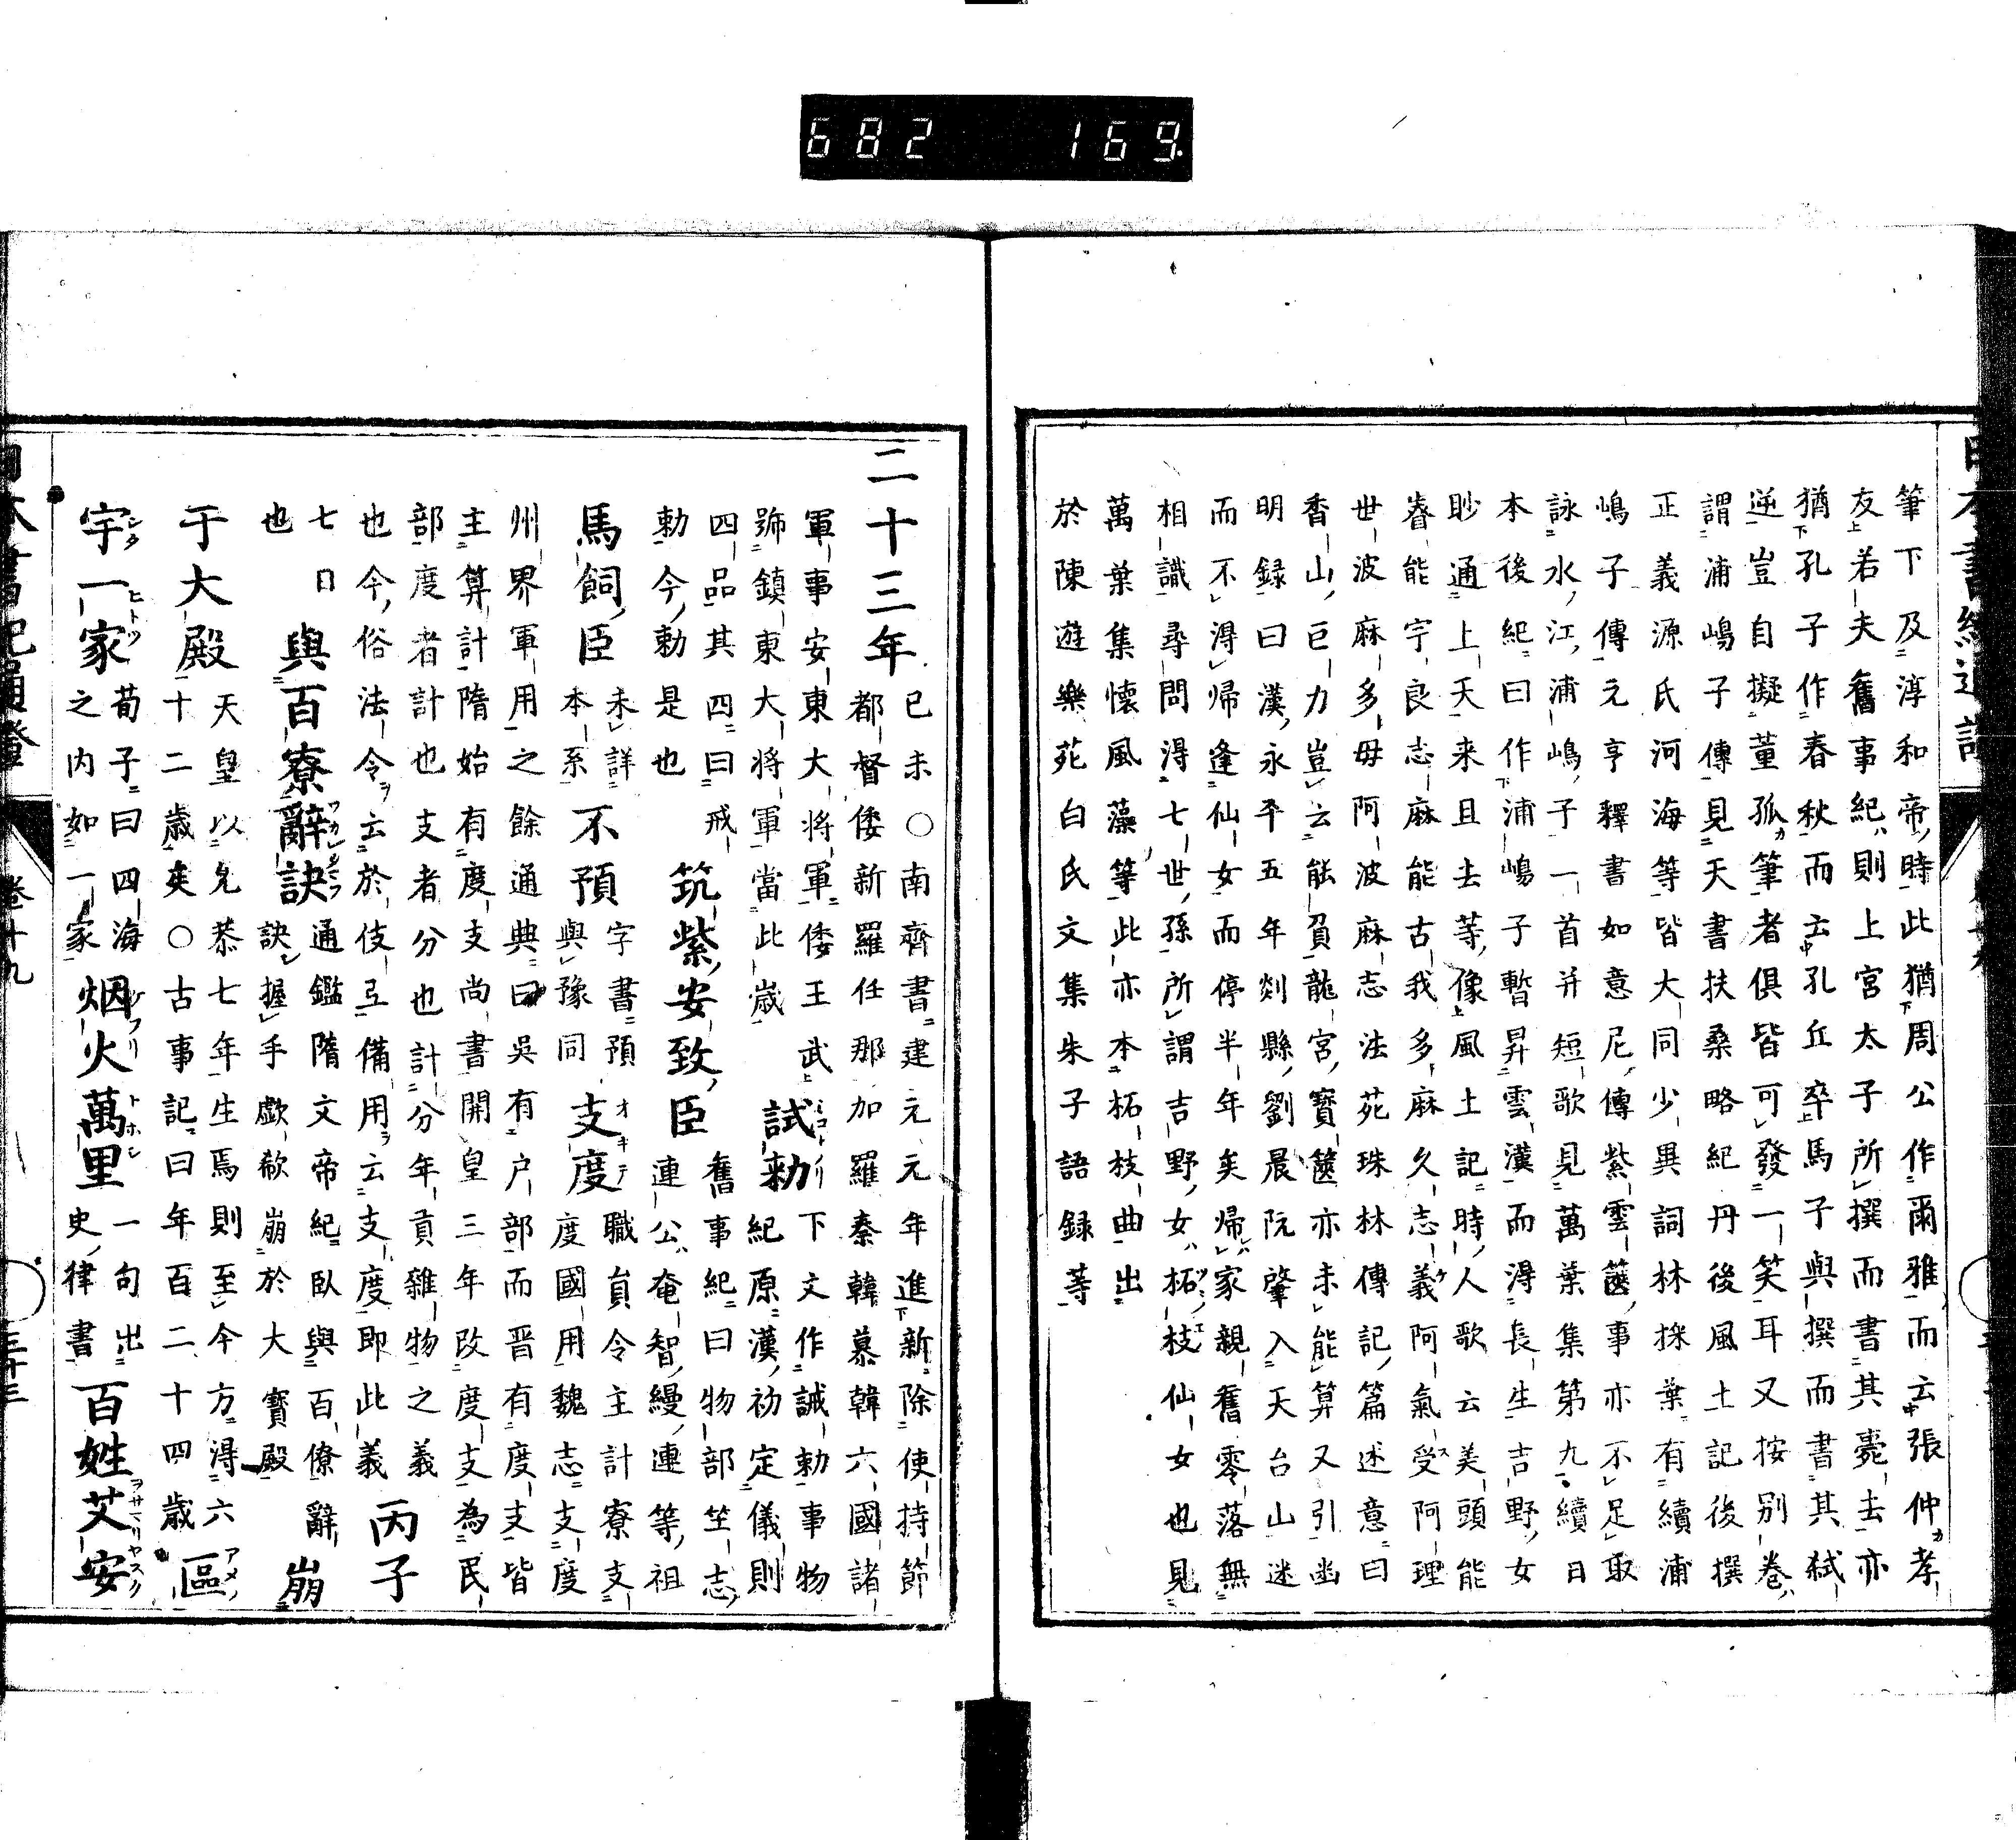 682 169.
筆下及淳和帝時此猶周公作爾雅而云張仲孝
友若夫舊事紀則上宮太子所撰而書其薨去亦
猶孔子作春秋而云孔丘卒馬子與撰而書其弑
逆豈自擬董孤筆者俱皆可發一笑耳又按別卷
謂浦嶋子傳見天書扶桑略紀丹後風土記後撰
正義源氏河海等皆大同少異詞林採葉有續浦
嶋子傳元亨釋書如意尼傳紫雲篋事亦不足取
詠水江浦嶋子一首并短歌見萬葉集第九續日
本後紀曰作浦嶋子暫昇雲漢而得長生吉野女
眇通上天来且去等像風土記時人歌云美頭能
睿能宇良志麻能古我多麻久志義阿氣受阿理
世波麻多母阿波麻志法苑珠林傳記篇述意曰
香山巨力豈云能負龍宮寶篋亦未能算又引幽
明録曰漢永平五年剡縣劉晨阮肇入天台山迷
而不得歸逢仙女而停半年矣歸家親舊零落無
相識尋問得七世孫所謂吉野女柘枝仙女也見
萬葉集懐風藻等此亦本柘枝曲出
於陳遊樂苑白氏文集朱子語録等
二十三年 已未○南齊書建元元年進新除使持節
都督倭新羅任那加羅秦韓慕韓六國諸
軍事安東大將軍倭王武 下文作誡勅事物
號鎮東大將軍當此歳 試勅 紀原漢初定儀則
四品其四曰戒 舊事紀曰物部竺志
勅今勅是也 筑紫安致臣 連公奄智縵連等祖
馬飼臣 未詳本系 不預 字書預與豫同 支度 職員令主計寮支度國用魏志支度
州界軍用之餘通典曰吳有户部而晋有度支皆
主算計隋始有度支尚書開皇三年改度支為民
部度者計也支者分也計分年貢雜物之義
也今俗法令云於伎弖備用云支度即此義 丙子
七日 與百寮辭訣 通鑑隋文帝紀臥與百僚辭
也 訣握手歔欷崩於大寳殿 崩
于大殿 天皇以允恭七年生焉則至今方得六
十二歳矣○古事記曰年百二十四歳 區
宇一家 荀子曰四海之内如一家 烟火萬里 一句出史律書 百姓艾安
卷十九
三十三